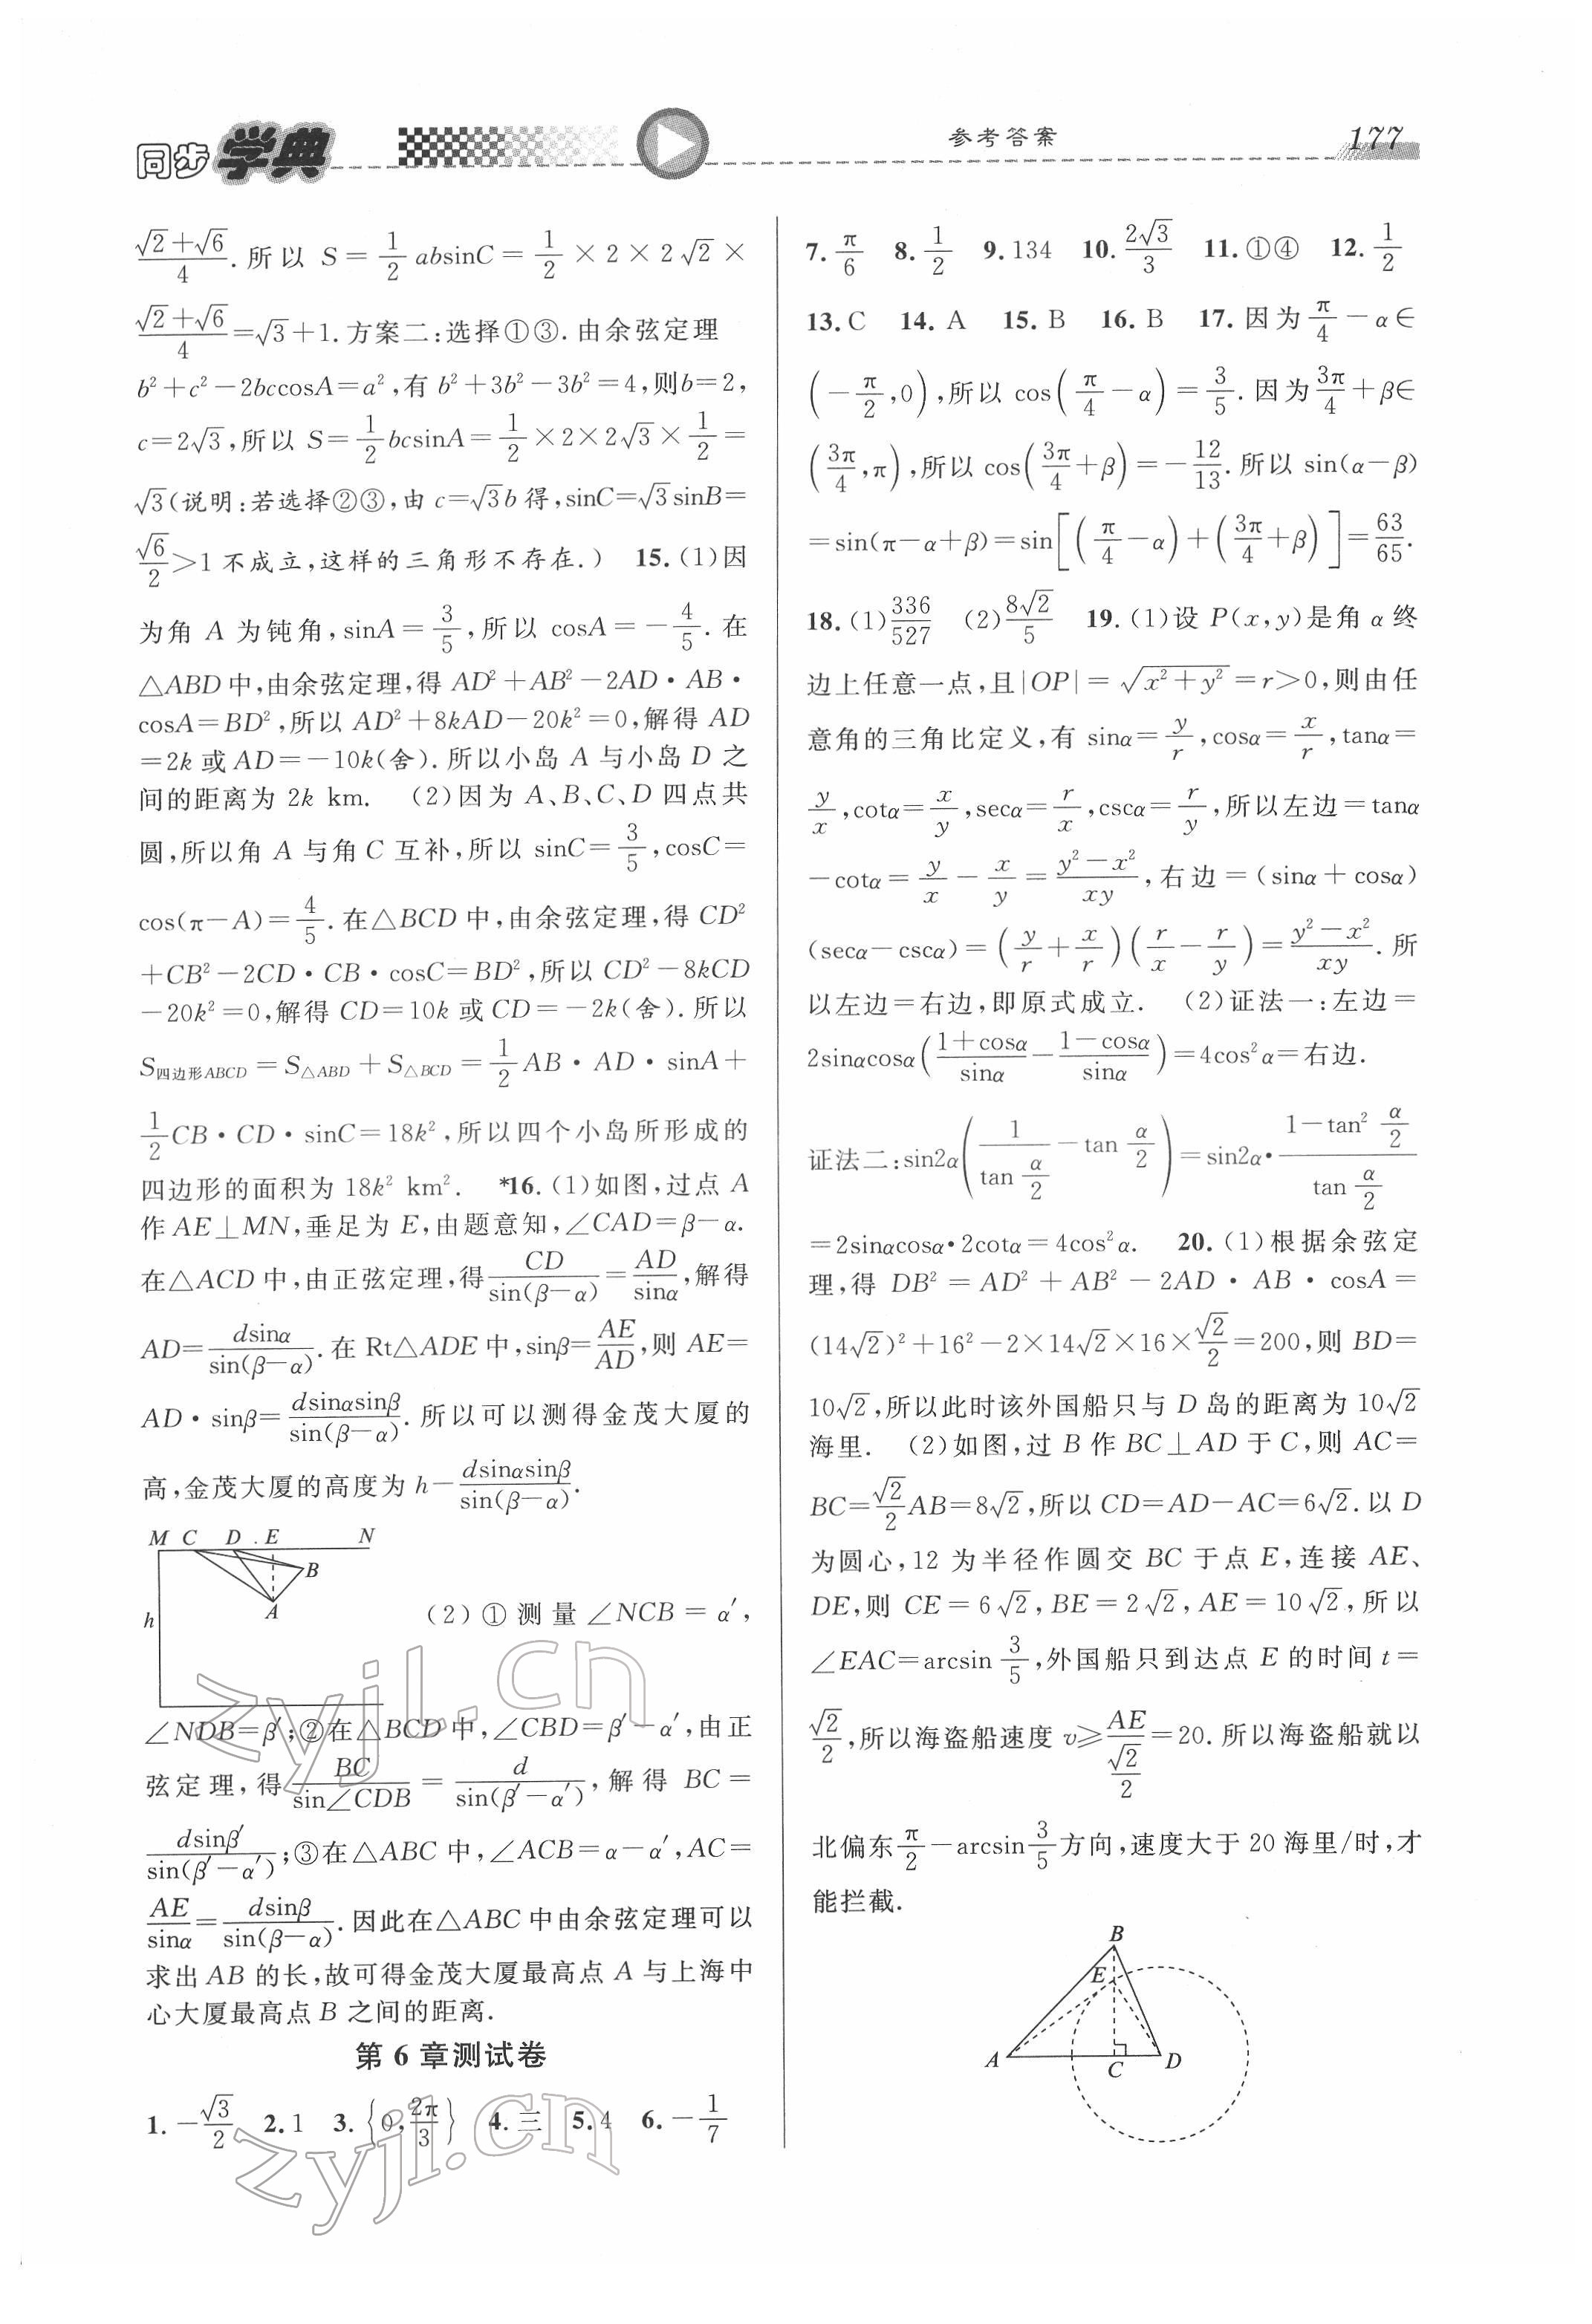 同步学典
参考答案
177
(√2+√6)/4.所以 S=1/2 absinC=1/2×2×2√2×
(√2+√6)/4=√3+1.方案二:选择①③.由余弦定理
b²+c²-2bccosA=a²,有 b²+3b²-3b²=4,则b=2,
c=2√3,所以 S=1/2 bcsinA=1/2×2×2√3×1/2=
√3(说明:若选择②③,由 c=√3b 得,sinC=√3sinB=
√6/2>1 不成立,这样的三角形不存在.) 15.(1)因
为角 A 为钝角,sinA=3/5,所以 cosA=-4/5.在
△ABD中,由余弦定理,得 AD²+AB²-2AD·AB·
cosA=BD²,所以 AD²+8kAD-20k²=0,解得 AD
=2k 或AD=-10k(舍).所以小岛 A 与小岛 D 之
间的距离为 2k km. (2)因为 A、B、C、D 四点共
圆,所以角 A 与角 C 互补,所以 sinC=3/5,cosC=
cos(π-A)=4/5.在△BCD 中,由余弦定理,得 CD²
+CB²-2CD·CB·cosC=BD²,所以 CD²-8kCD
-20k²=0,解得 CD=10k 或 CD=-2k(舍).所以
S四边形ABCD=S△ABD+S△BCD=1/2 AB·AD·sinA+
1/2 CB·CD·sinC=18k²,所以四个小岛所形成的
四边形的面积为 18k² km². *16.(1)如图,过点 A
作 AE⊥MN,垂足为 E,由题意知,∠CAD=β-α.
在△ACD 中,由正弦定理,得 CD/sin(β-α)=AD/sinα,解得
AD=dsinα/sin(β-α).在 Rt△ADE 中,sinβ=AE/AD,则 AE=
AD·sinβ=dsinαsinβ/sin(β-α).所以可以测得金茂大厦的
高,金茂大厦的高度为 h-dsinαsinβ/sin(β-α).
M C D . E N
B
A
h
(2)①测量∠NCB=α′,
∠NDB=β′;②在△BCD 中,∠CBD=β′-α′,由正
弦定理,得 BC/sin∠CDB=d/sin(β′-α′),解得 BC=
dsinβ′/sin(β′-α′);③在△ABC 中,∠ACB=α-α′,AC=
AE/sinα=dsinβ/sin(β-α).因此在△ABC 中由余弦定理可以
求出 AB 的长,故可得金茂大厦最高点 A 与上海中
心大厦最高点 B 之间的距离.
第 6 章测试卷
1.-√3/2 2.1 3.{0,2π/3} 4.三 5.4 6.-1/7
7.π/6 8.1/2 9.134 10.2√3/3 11.①④ 12.1/2
13.C 14.A 15.B 16.B 17.因为π/4-α∈
(-π/2,0),所以 cos(π/4-α)=3/5.因为3π/4+β∈
(3π/4,π),所以 cos(3π/4+β)=-12/13.所以 sin(α-β)
=sin(π-α+β)=sin[(π/4-α)+(3π/4+β)]=63/65.
18.(1)336/527 (2)8√2/5 19.(1)设 P(x,y)是角 α 终
边上任意一点,且|OP|=√(x²+y²)=r>0,则由任
意角的三角比定义,有 sinα=y/r,cosα=x/r,tanα=
y/x,cotα=x/y,secα=r/x,cscα=r/y,所以左边=tanα
-cotα=y/x-x/y=(y²-x²)/xy,右边=(sinα+cosα)
(secα-cscα)=(y/r+x/r)(r/x-r/y)=(y²-x²)/xy.所
以左边=右边,即原式成立. (2)证法一:左边=
2sinαcosα((1+cosα)/sinα-(1-cosα)/sinα)=4cos²α=右边.
证法二:sin2α(1/tan(α/2)-tan α/2)=sin2α·(1-tan² α/2)/tan(α/2)
=2sinαcosα·2cotα=4cos²α. 20.(1)根据余弦定
理,得 DB²=AD²+AB²-2AD·AB·cosA=
(14√2)²+16²-2×14√2×16×√2/2=200,则 BD=
10√2,所以此时该外国船只与 D 岛的距离为 10√2
海里. (2)如图,过 B 作 BC⊥AD 于 C,则 AC=
BC=√2/2 AB=8√2,所以 CD=AD-AC=6√2.以 D
为圆心,12 为半径作圆交 BC 于点 E,连接 AE、
DE,则 CE=6√2,BE=2√2,AE=10√2,所以
∠EAC=arcsin 3/5,外国船只到达点 E 的时间 t=
√2/2,所以海盗船速度 v≥AE/(√2/2)=20.所以海盗船就以
北偏东π/2-arcsin3/5方向,速度大于 20 海里/时,才
能拦截.
B
E
A C D
zyjl.cn
zyjl.cn